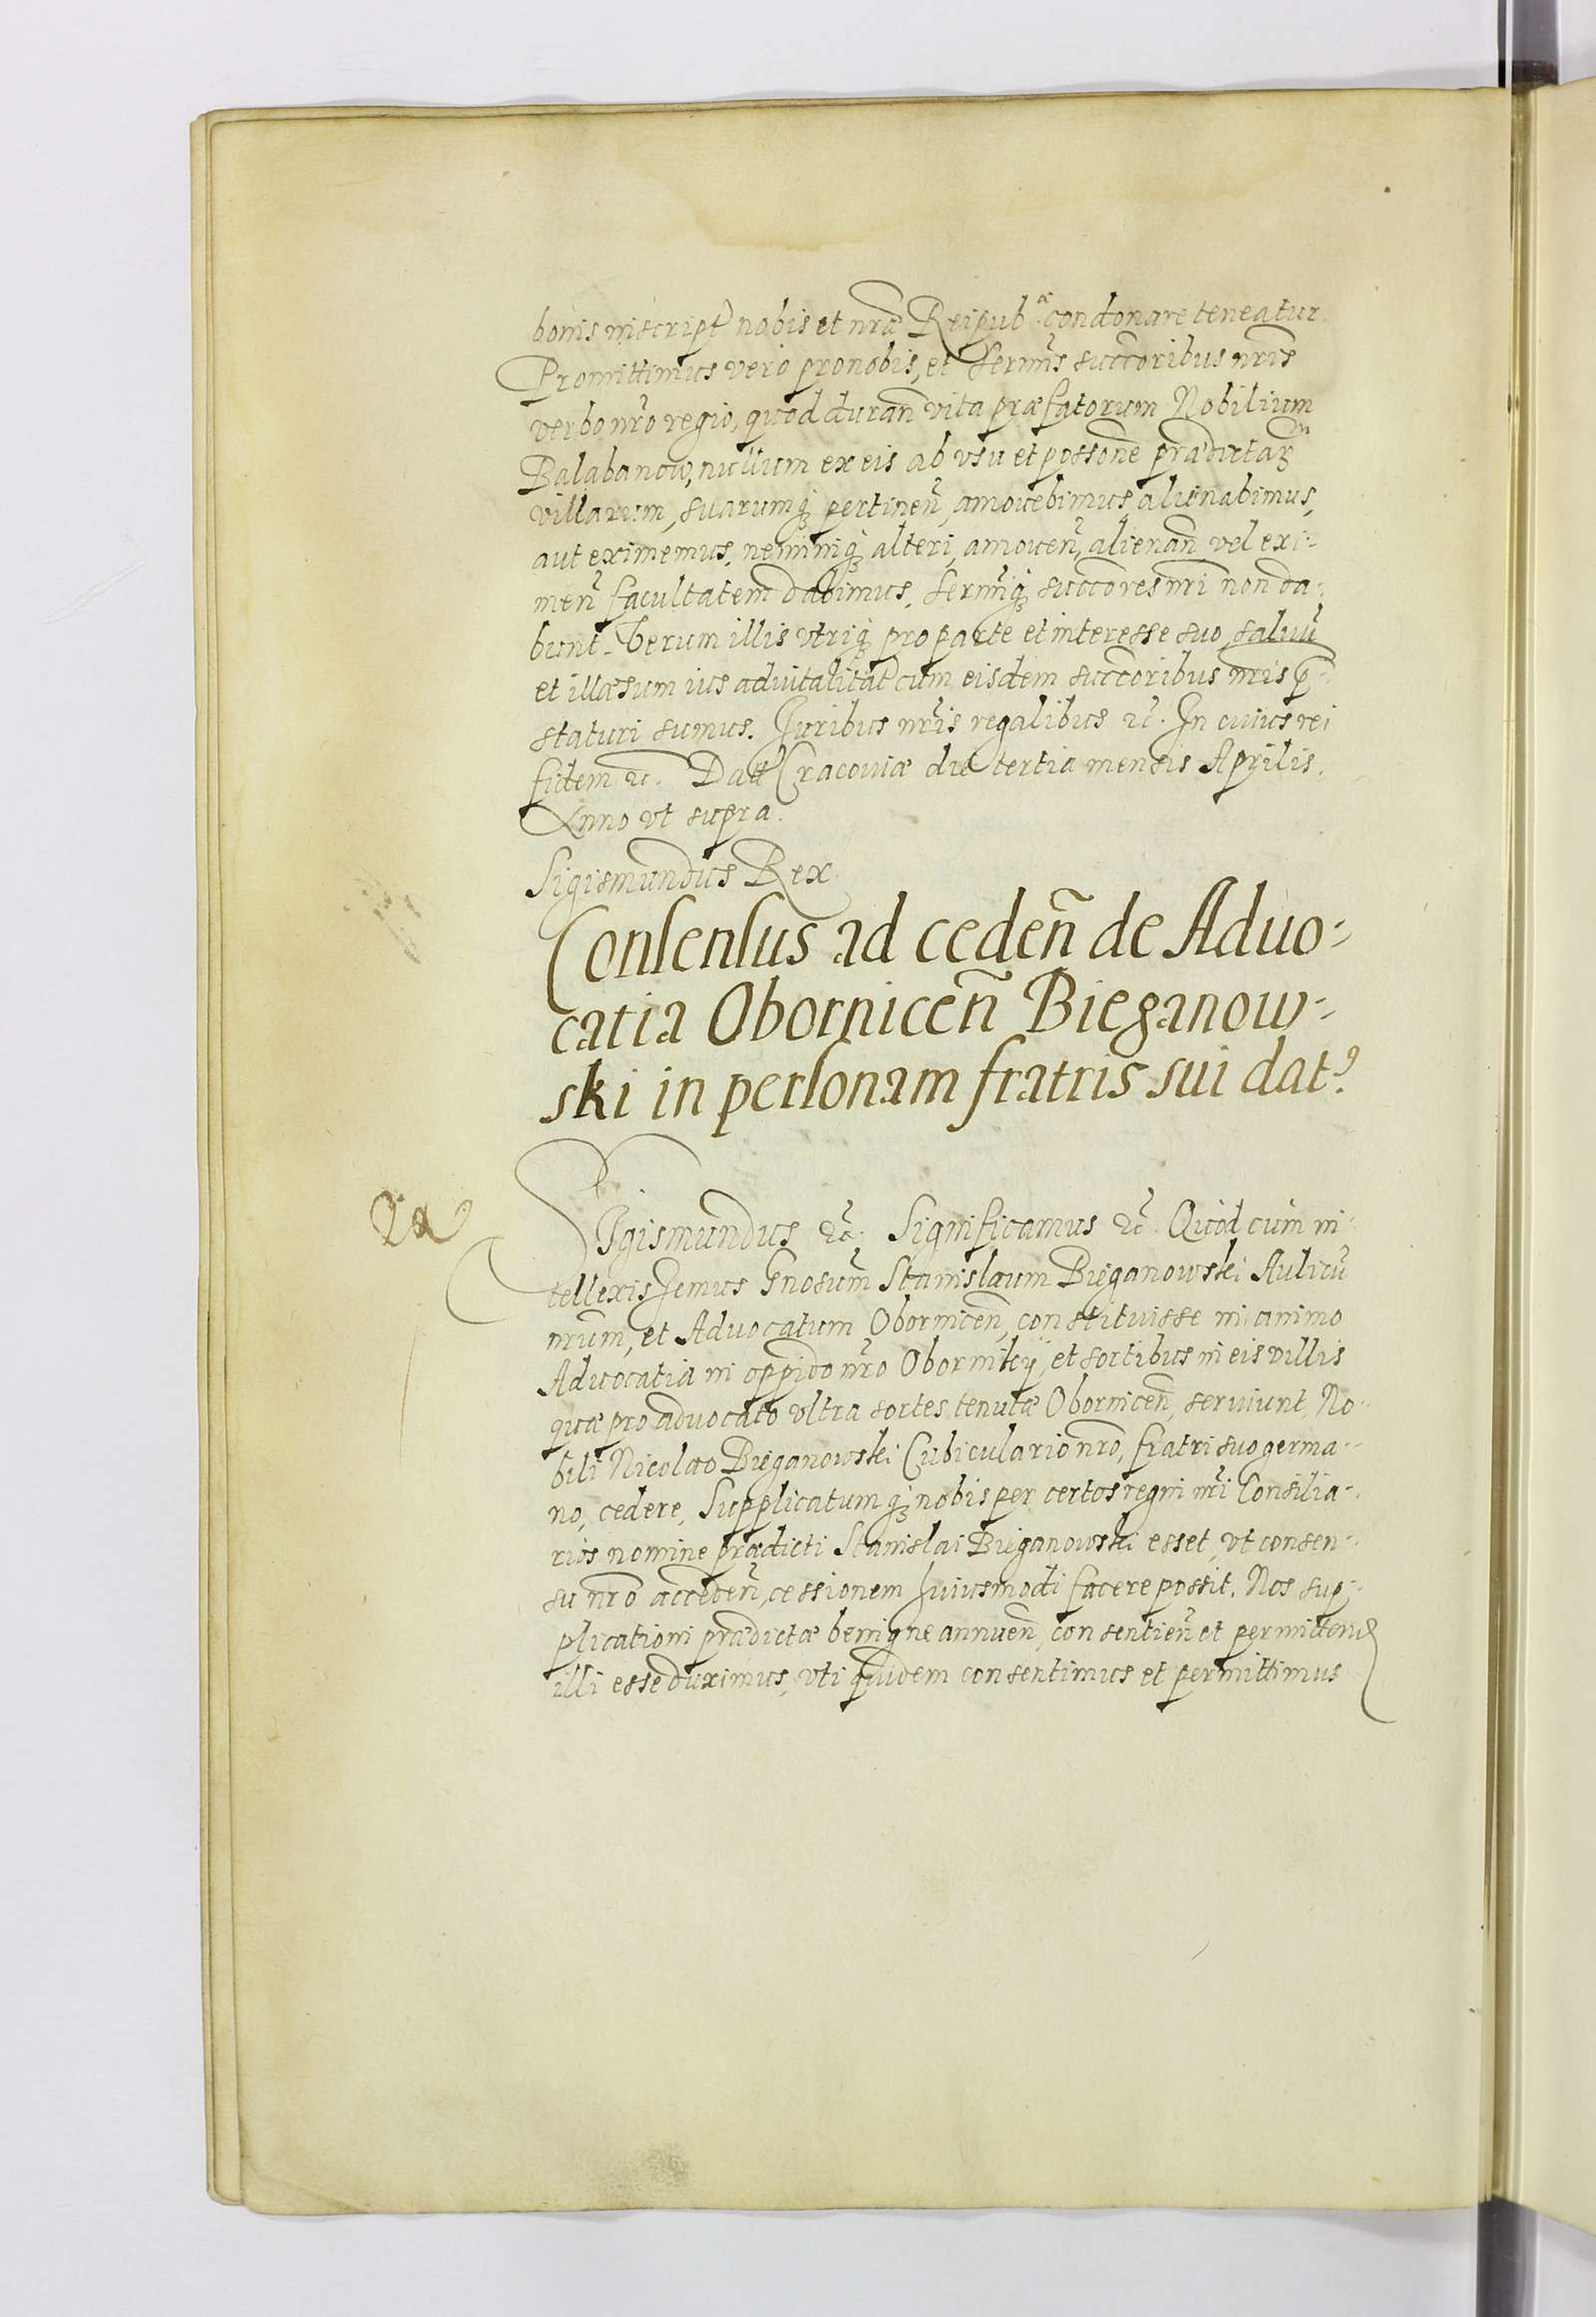 bonis inscript nobis et nr̃æ Reipub.ᶜᵃ condonare teneatur.
Promittimus vero pro nobis, et Serm̃is succ̃oribus nr̃is
verbo nr̃o regio, quod duran̄ vita præfatorum Nobilium
Balabanow, nullum ex eis ab vsu et possõne prædictaꝝ
villarum, suarumqꝫ pertinen̄, amouebimus, alienabimus,
aut eximemus. neminiqꝫ alteri, amouen̄, alienan̄ vel exi-
men̄ facultatem dabimus. Serm̃iqꝫ succ̃ores nr̃i non da-
bunt. Verum illis vtriqꝫ pro parte et interesse suo, saluū
et illæsum ius aduitalitat̃ cum eisdem succ̃oribus nr̃is p̄-
staturi sumus. Juribus nr̃is regalibus ꝛc̃. In cuius rei
fidem ꝛc. Datt Cracouiæ die tertia mensis Aprilis.
Anno vt supra.
Sigismundus Rex
Consensus ad ceden̄ de Aduo-
catia Obornicen̄ Bieganow-
ski in personam fratris sui dat9
Sigismundus ꝛc̃. Significamus ꝛc̃. Quod cum in-
tellexissemus Gnosum̃ Stanislaum Bieganowski Aulicū
nrūm, et Advocatum Obornicen̄, constituisse in animo
Advocatia in oppido nr̃o Obornikÿ, et sortibus in eis villis
quæ pro advocato vltra sortes tenutæ Obornicen̄, seruiunt, No-
bili Nicolao Bieganowski Cubiculario nr̃o, fratri suo germa-
no, cedere, Supplicatumqꝫ nobis per certos regni nr̃i Consilia-
rios nomine prædicti Stanislai Bieganowski esset, vt consen-
su nr̃o acceden̄, cessionem huiusmodi facere possit. Nos sup-
plicationi prædictæ benigne annuen̄, consentien̄ et permittend
illi esse duximus, vti quidem consentimus et permittimus